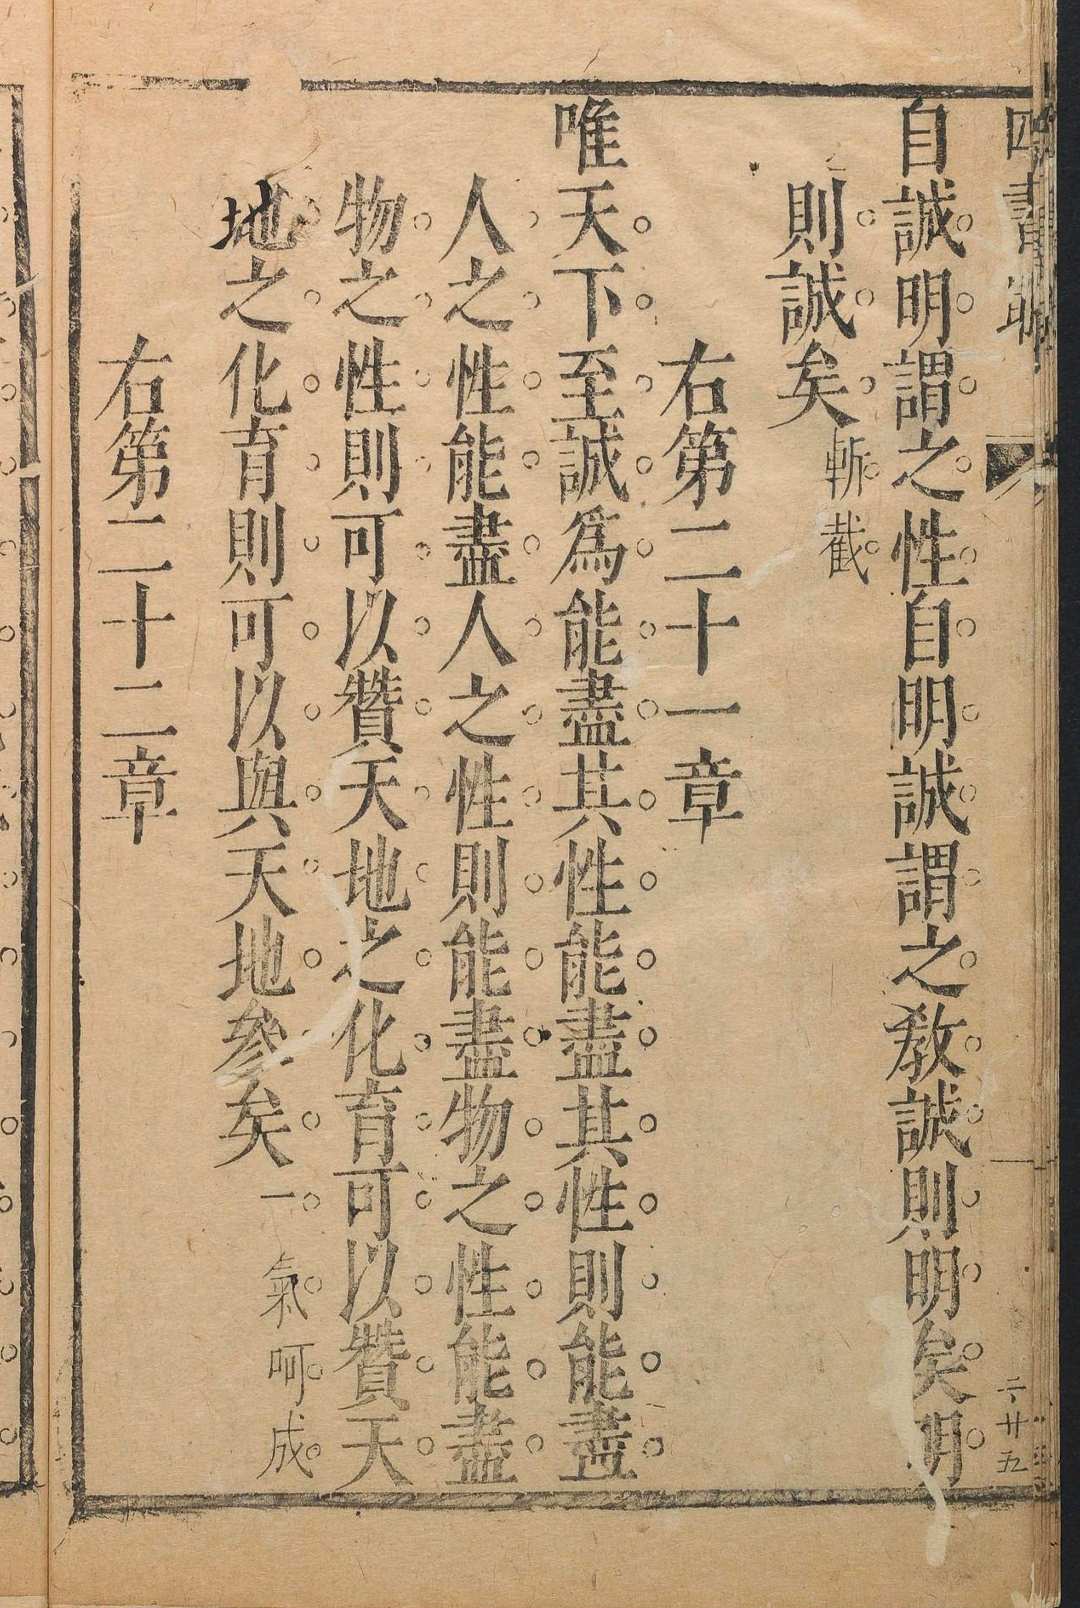 自誠明謂之性自明誠謂之教誠則明矣明
則誠矣斬截
右第二十一章
唯天下至誠為能盡其性能盡其性則能盡
人之性能盡人之性則能盡物之性能盡
物之性則可以贊天地之化育可以贊天
地之化育則可以與天地參矣一氣呵成
右第二十二章
四書
二廿五